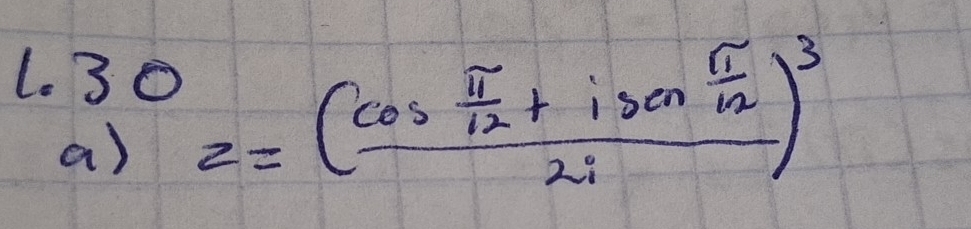 1.30
a) z = ( (cos π/12 + i sen π/12) / 2i )³